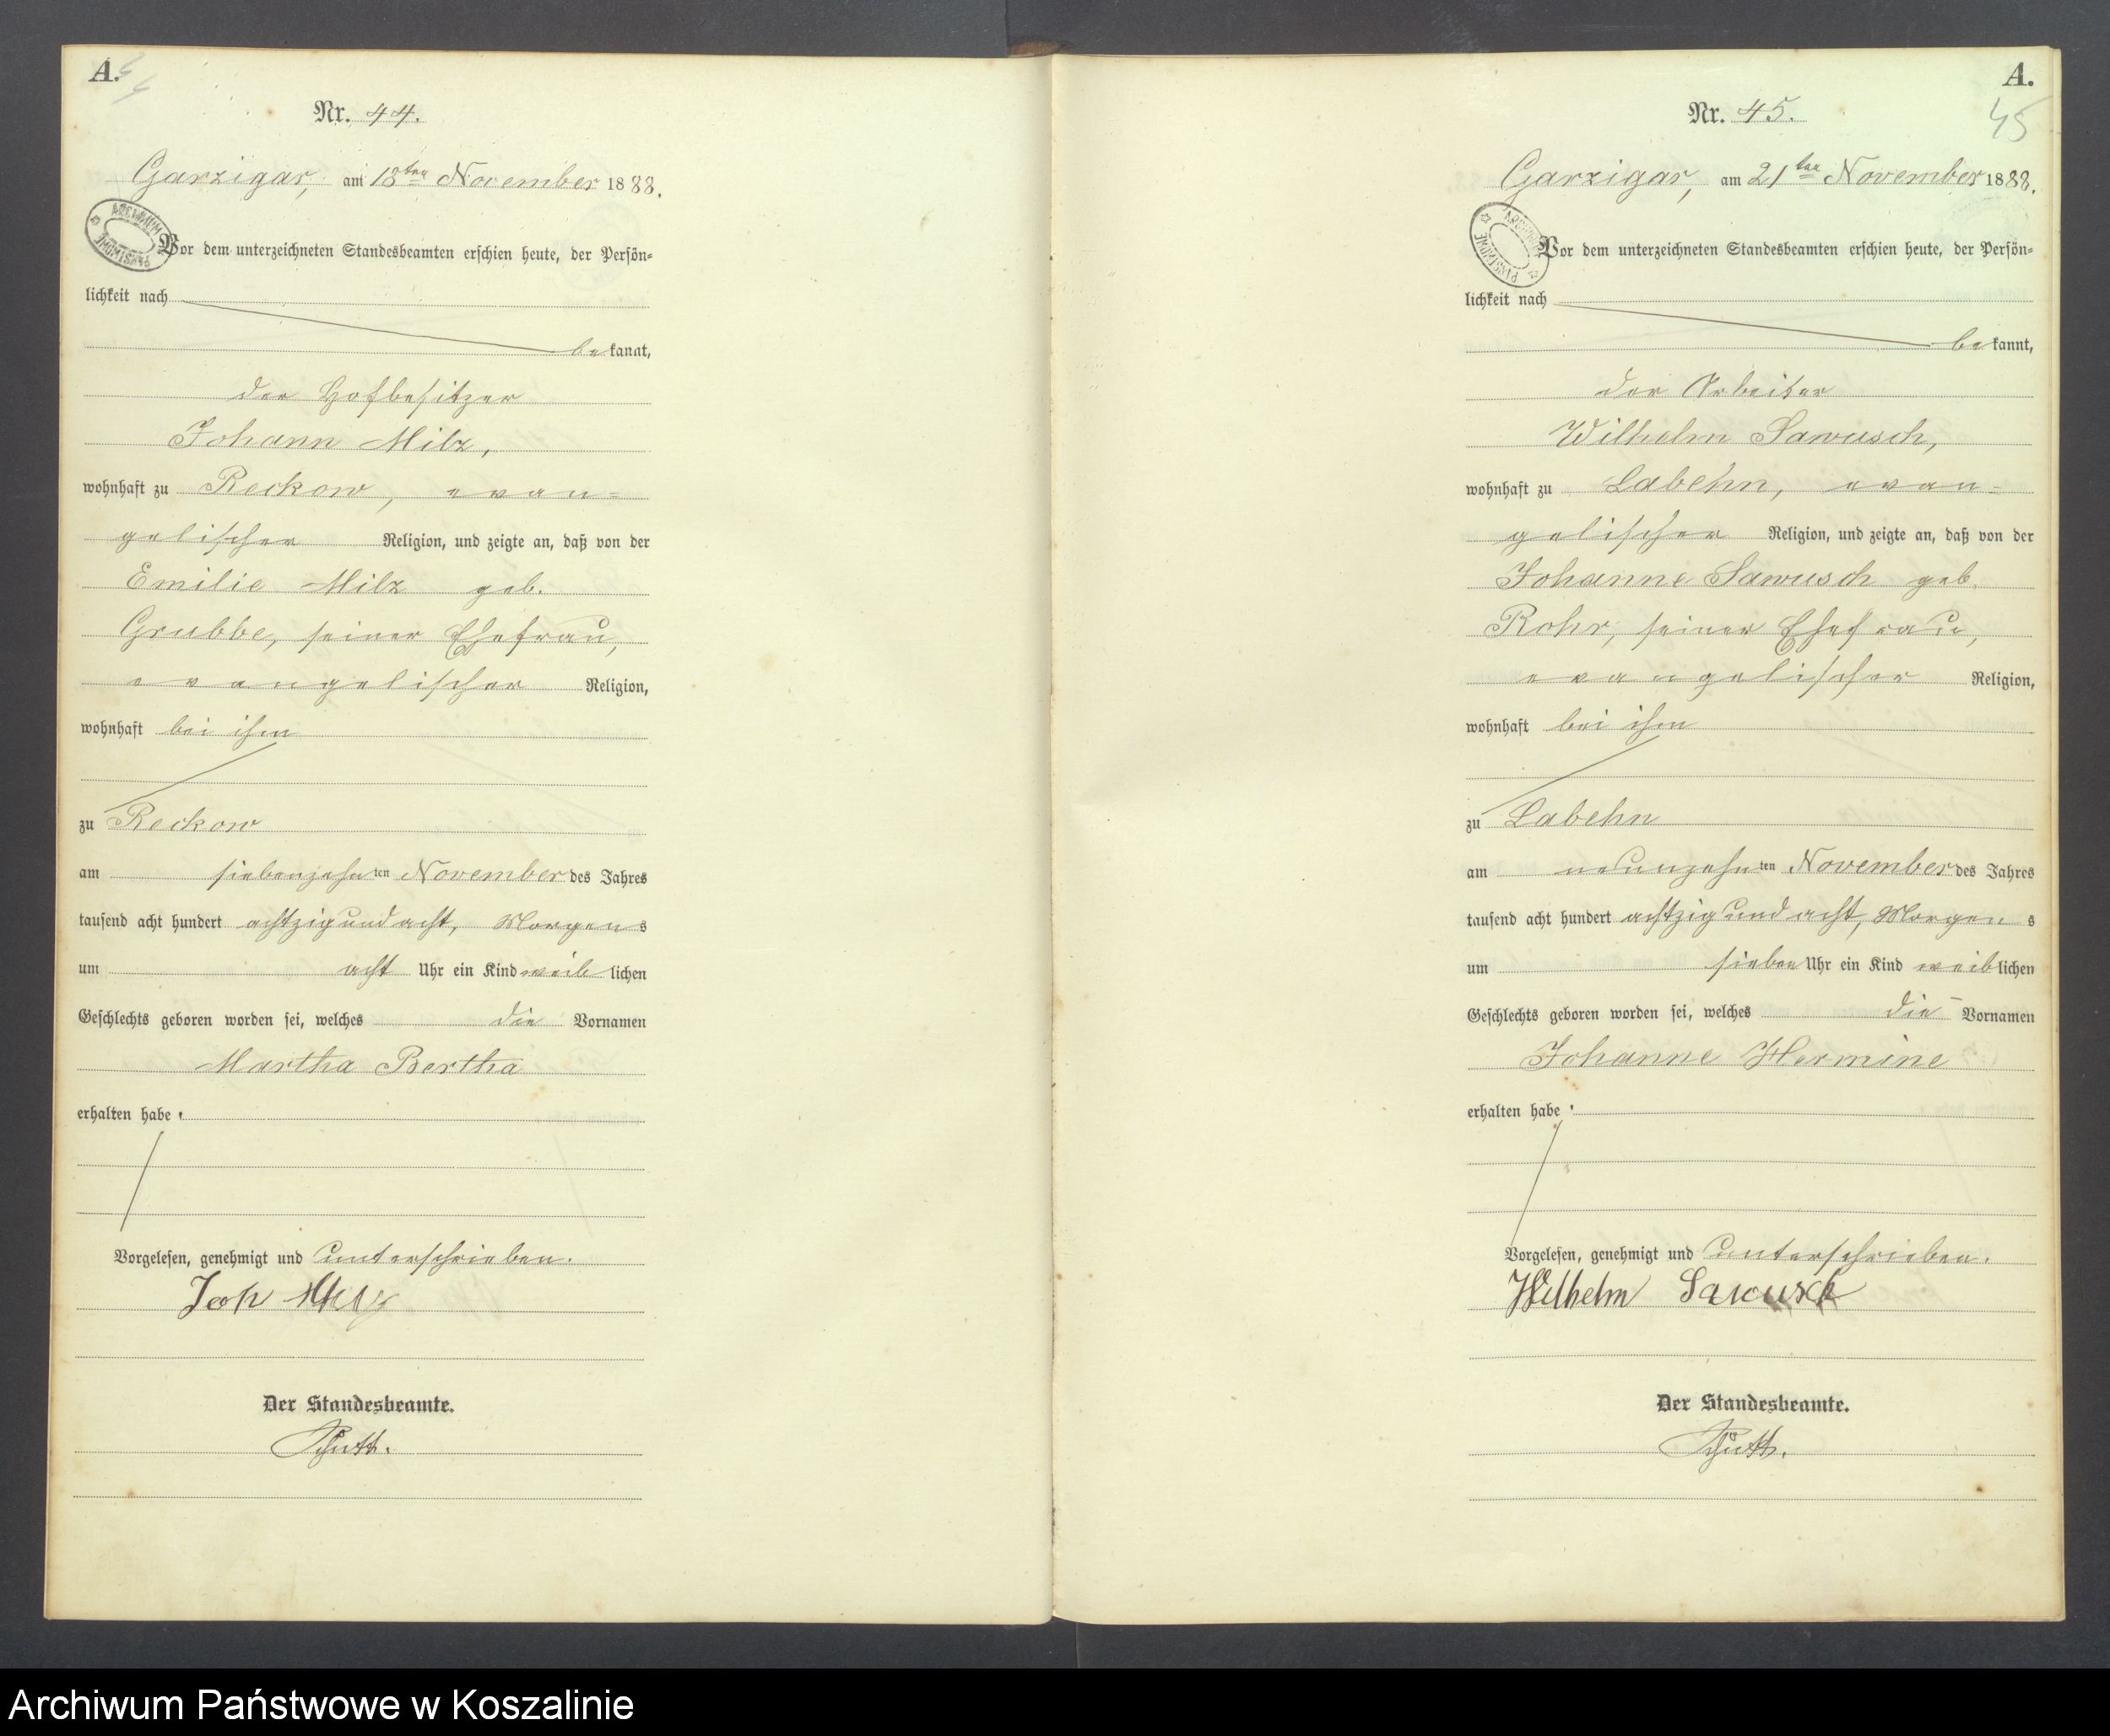 A.
44
Nr. 44.
Garzigar, am 18ten November 1888.
Vor dem unterzeichneten Standesbeamten erschien heute, der Persön-
lichkeit nach
bekannt,
der Hofbesitzer
Johann Milz,
wohnhaft zu Reckow, evan-
gelischer Religion, und zeigte an, daß von der
Emilie Milz geb.
Grubbe, seiner Ehefrau,
evangelischer Religion,
wohnhaft bei ihm
zu Reckow
am siebenzehnten November des Jahres
tausend acht hundert achtzig und acht, Morgens
um acht Uhr ein Kind weiblichen
Geschlechts geboren worden sei, welches die Vornamen
Martha Bertha
erhalten habe.
Vorgelesen, genehmigt und unterschrieben.
Joh Milz
Der Standesbeamte.
A.
45
Nr. 45.
Garzigar, am 21ten November 1888.
Vor dem unterzeichneten Standesbeamten erschien heute, der Persön-
lichkeit nach
bekannt,
der Arbeiter
Wilhelm Sawusch,
wohnhaft zu Labehn, evan-
gelischer Religion, und zeigte an, daß von der
Johanne Sawusch geb.
Rohr, seiner Ehefrau,
evangelischer Religion,
wohnhaft bei ihm
zu Labehn
am neunzehnten November des Jahres
tausend acht hundert achtzig und acht, Morgens
um sieben Uhr ein Kind weiblichen
Geschlechts geboren worden sei, welches die Vornamen
Johanne Hermine
erhalten habe.
Vorgelesen, genehmigt und unterschrieben.
Wilhelm Sawusch
Der Standesbeamte.
Archiwum Państwowe w Koszalinie